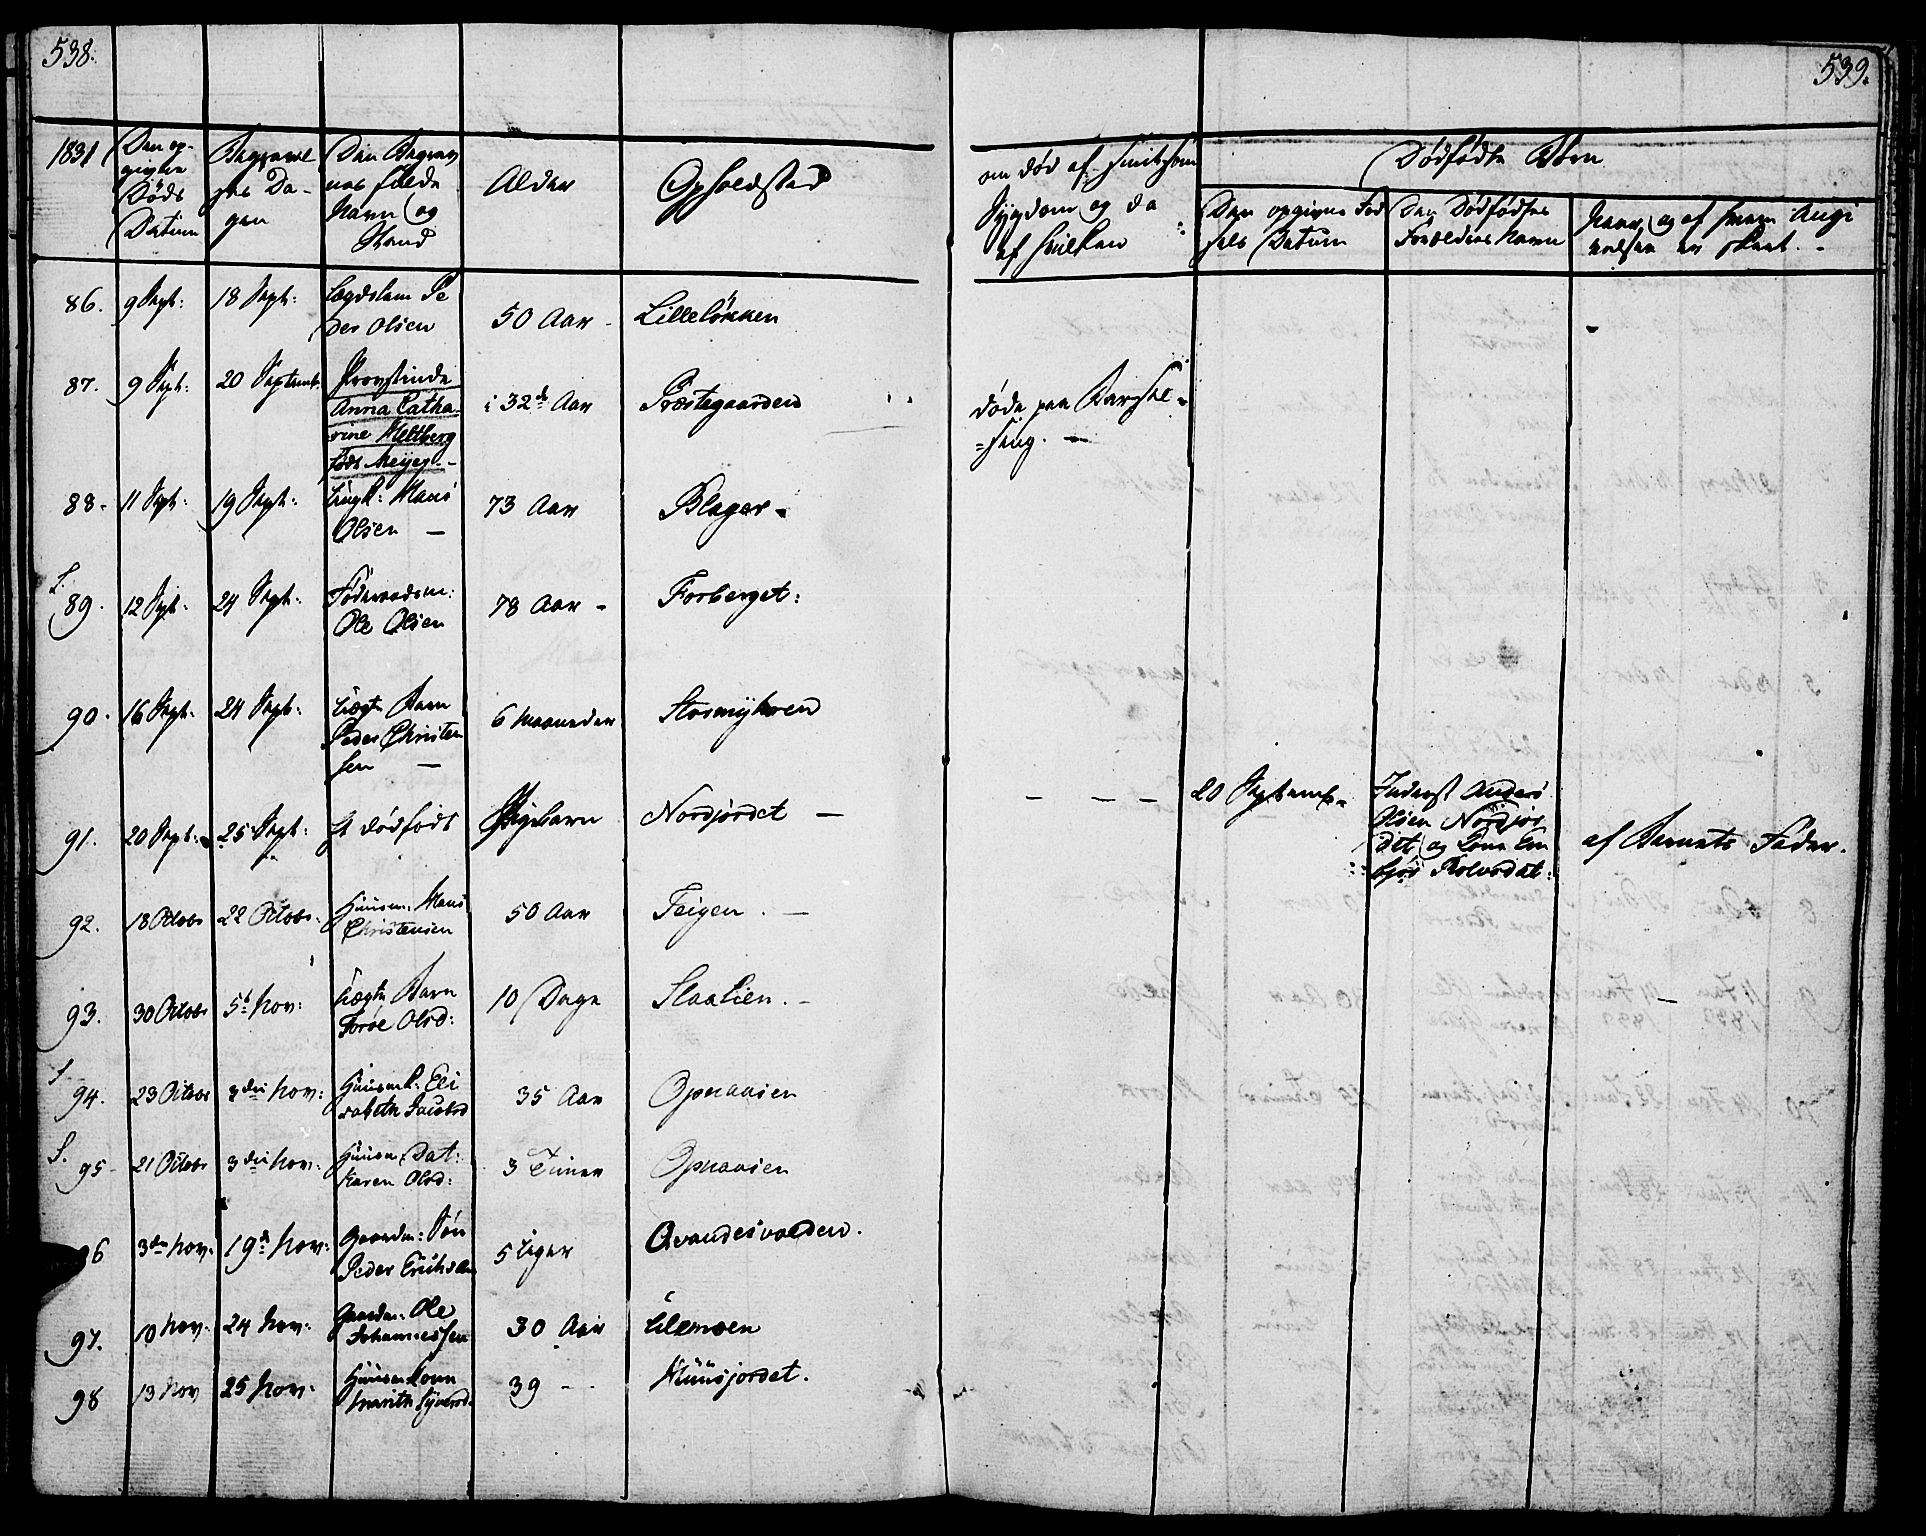 538.
539.
1831
Den op-
givne
Døds
Datum
Begravel
ses Da-
gen
Den Begrav
nes fulde
Navn og
Stand
Alder
Opholdsted
om død af smitsom
Sygdom og da
af hvilken
Dødfødte Børn
Den opgivne Fød
sels Datum
Den Dødfødtes
Forældres Navn
naar og af hvem Angi
velsen er skeet. -
86. 9 Sept: 18 Sept: Lægdslem Pe
der Olsen 50 Aar - Lilleløkken
87. 9 Sept: 20 Septemb: Provstinde
Anna Catha-
rine Heltberg
født Meyer - i 32de Aar Præstegaarden døde paa Barsel-
=seng. -
88. 11 Sept: 19 Sept: Hans
Olsen - 73 Aar Blager
S. 89. 12 Sept: 24 Sept: Føderaadsm:
Ole Olsen 78 Aar - Forberget:
90. 16 Sept: 24 Sept: Ægte Barn
Peder Christen
sen - 6 Maaneder Stormyhren
91. 20 Sept: 25 Sept: Et dødfødt Pigebarn Nordjordet - - - - 20 Septemb. Inderst Anders
Olsen Nordjor
det og Kone
af Barnets Fader.
92. 18 Octobr 22 Octobr. Huusm: Hans
Christensen 50 Aar Teigen. -
93. 30 Octobr 5te Nov: Ægte Barn
Olsd: 10 Dage Slaalien. -
S 94. 23 Octobr 3die Nov: Huusmk: Eli
sabeth Jacobsd 35 Aar Opnaasen
S. 95 - 21 Octobr 3die Nov: Huusm. Dat:
Karen Olsd: 3 Timer Opnaasen
96 3die Nov: 19de Nov: Gaardm: Søn
Peder Erichsen 5 Uger Qvandesvolden.
97. 10 Nov: 24 Nov: Gaardm: Ole
Johannessen 30 Aar Lilemoen
98 13 Nov 25 Nov: Huusm Kone
Marith 39 - - Huusjordet.